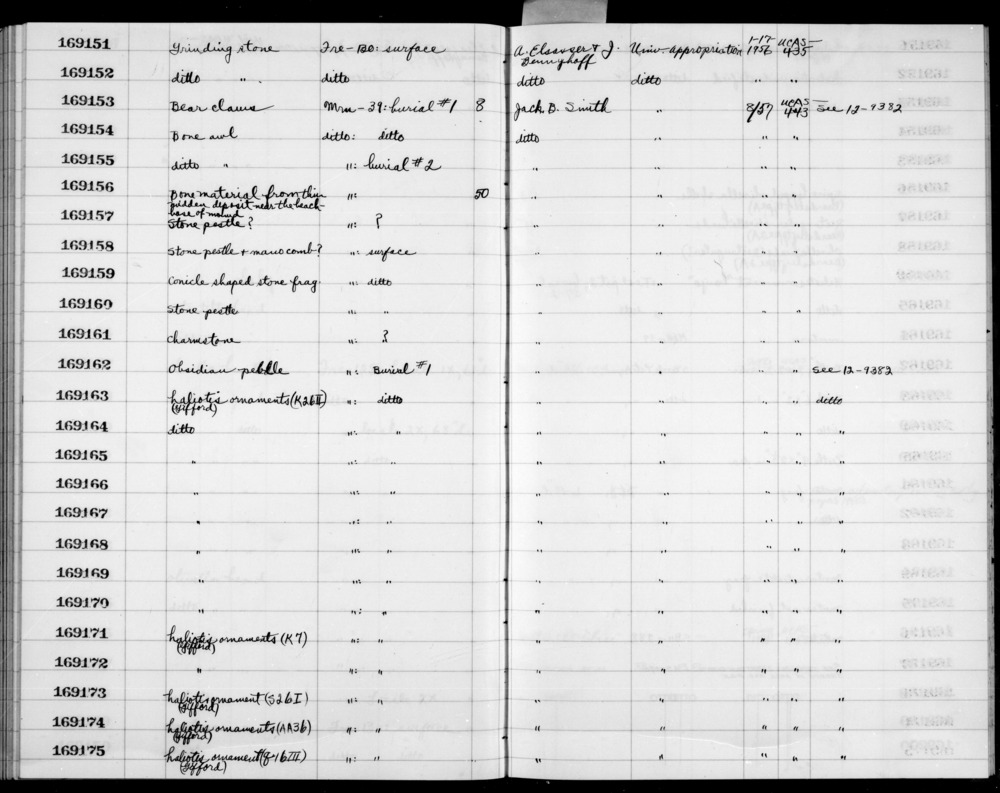 169151 Grinding stone Fre-80: surface A. Elsasser & J. Univ-appropriation 1-17- UCAS-
Bennyhoff 1956 435
169152 ditto " ditto ditto ditto
169153 Bear claws Mrn-39: burial #1 8 Jack B. Smith " 8/57 UCAS- See 12-9382
443
169154 Bone awl ditto: ditto ditto " " "
169155 ditto " ": burial #2 " " " "
169156 Bone material from thin ": 50 " " " "
midden deposit near the beach-
base of mound
169157 Stone pestle? ": ? " " " "
169158 Stone pestle + mano comb? ": surface " " " "
169159 Conicle shaped stone frag. ": ditto " " " "
169160 Stone pestle ": " " " " "
169161 Charmstone ": ? " " " "
169162 Obsidian pebble ": Burial #1 " " " " See 12-9382
169163 haliotis ornaments (K26II) ": ditto " " " " ditto
(Gifford)
169164 ditto ": " " " " " "
169165 " ": " " " " " "
169166 " ": " " " " " "
169167 " ": " " " " " "
169168 " ": " " " " " "
169169 " ": " " " " " "
169170 " ": " " " " " "
169171 haliotis ornaments (K7) ": " " " " " "
(Gifford)
169172 " ": " " " " " "
169173 haliotis ornament (S26I) ": " " " " " "
(Gifford)
169174 haliotis ornaments (AA3b) ": " " " " " "
(Gifford)
169175 haliotis ornament ": " " " " " "
(Gifford)